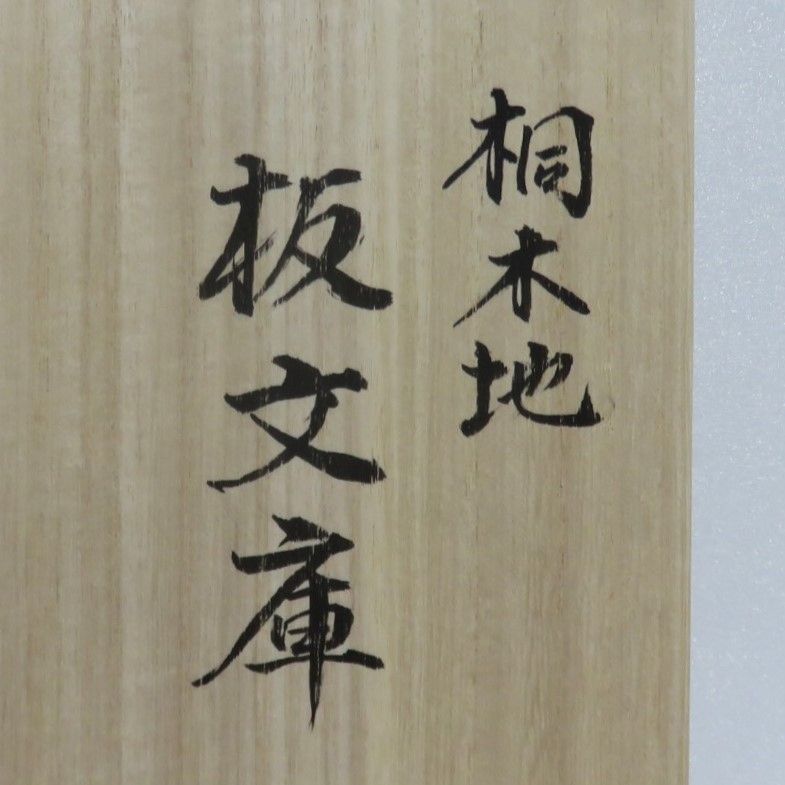 桐木地
板文庫